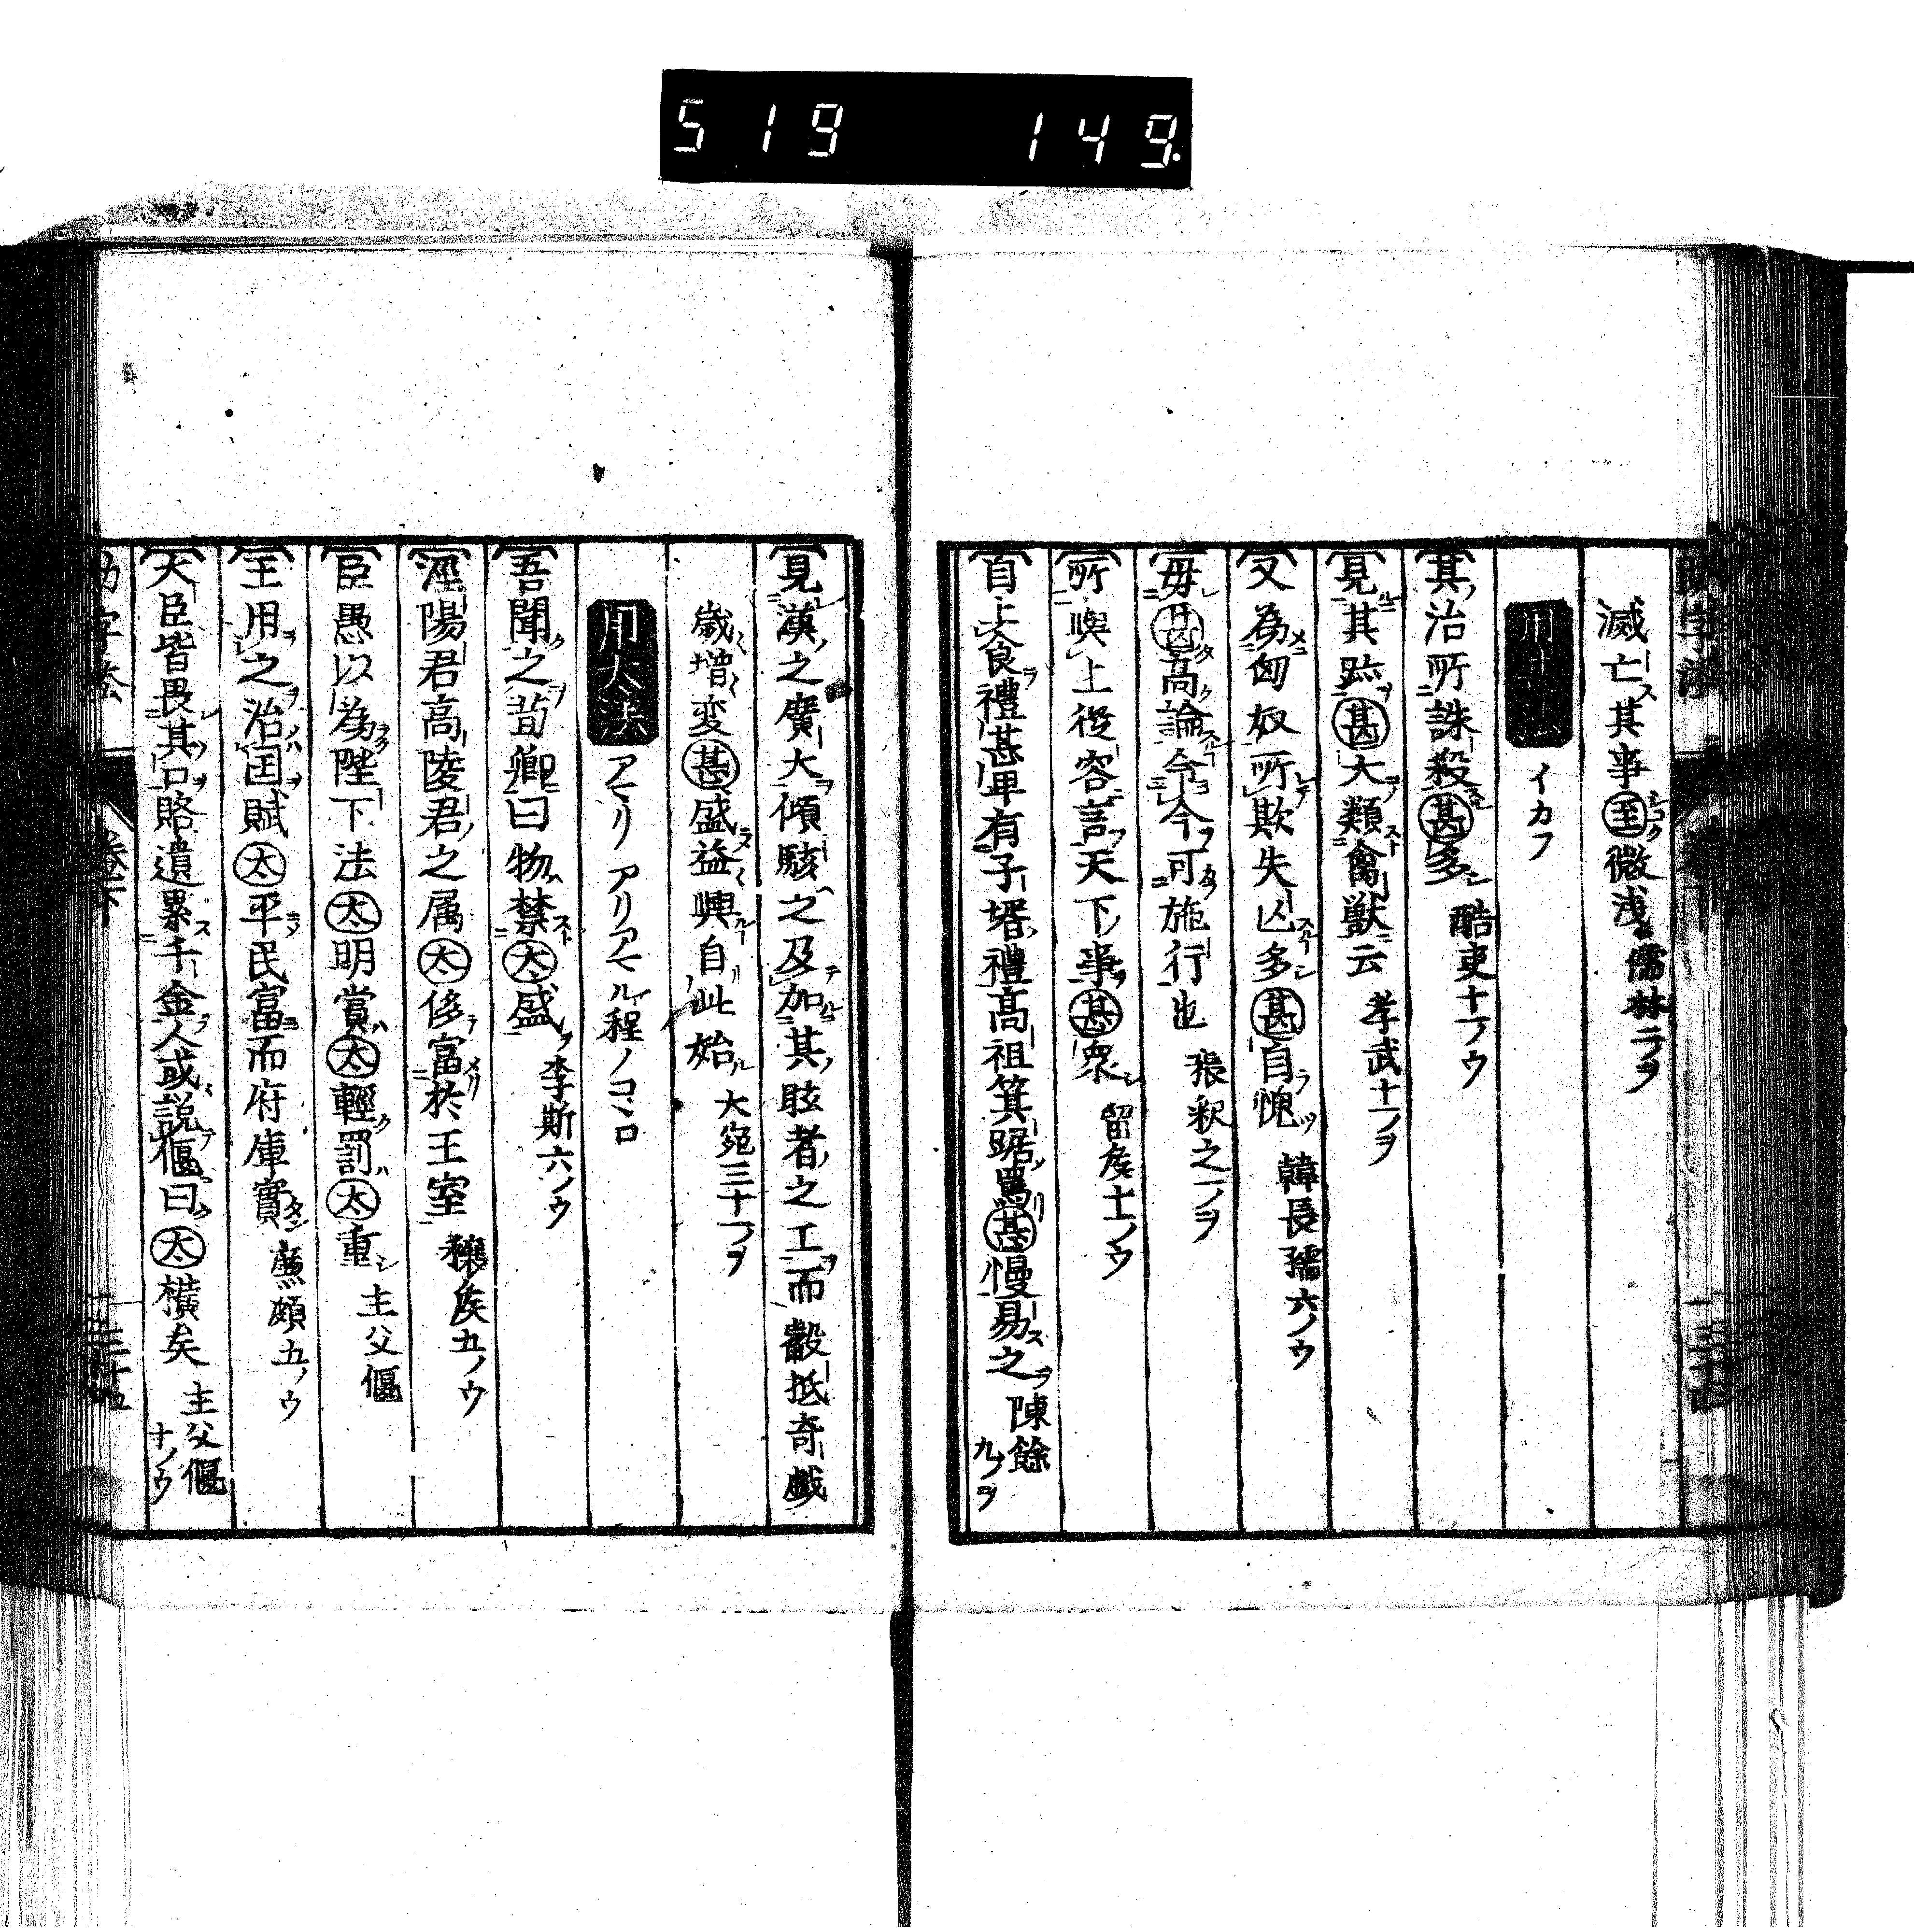 519 149.
滅亡其事至微浅 儒林二ノヲ
用甚法 イカフ
其治所誅殺甚多 酷吏十一ノウ
見其跡甚大類禽獣云 孝武十一ノヲ
又為匈奴所欺失亡多甚自愧 韓長孺六ノウ
毋甚高論令今可施行也 張釈之一ノヲ
所與上従容言天下事甚衆 留侯十一ノウ
自上食禮甚卑有子壻禮高祖箕踞罵甚慢易之 陳餘九ノヲ
見漢之廣大傾駭之及加其眩者之工而觳抵奇戯
歳増変甚盛益興自此始 大宛三十一ノヲ
用太法 アマリ アリアマル程ノコヽロ
吾聞之荀卿曰物禁太盛 李斯六ノウ
涇陽君高陵君之属太侈富於王室 穰侯五ノウ
臣愚以為陛下法太明賞太輕罰太重 主父偃
王用之治国賦太平民富而府庫實 廉頗五ノウ
大臣皆畏其口賂遺累千金人或説偃曰太横矣 主父偃十ノウ
助字法 巻下 三十四